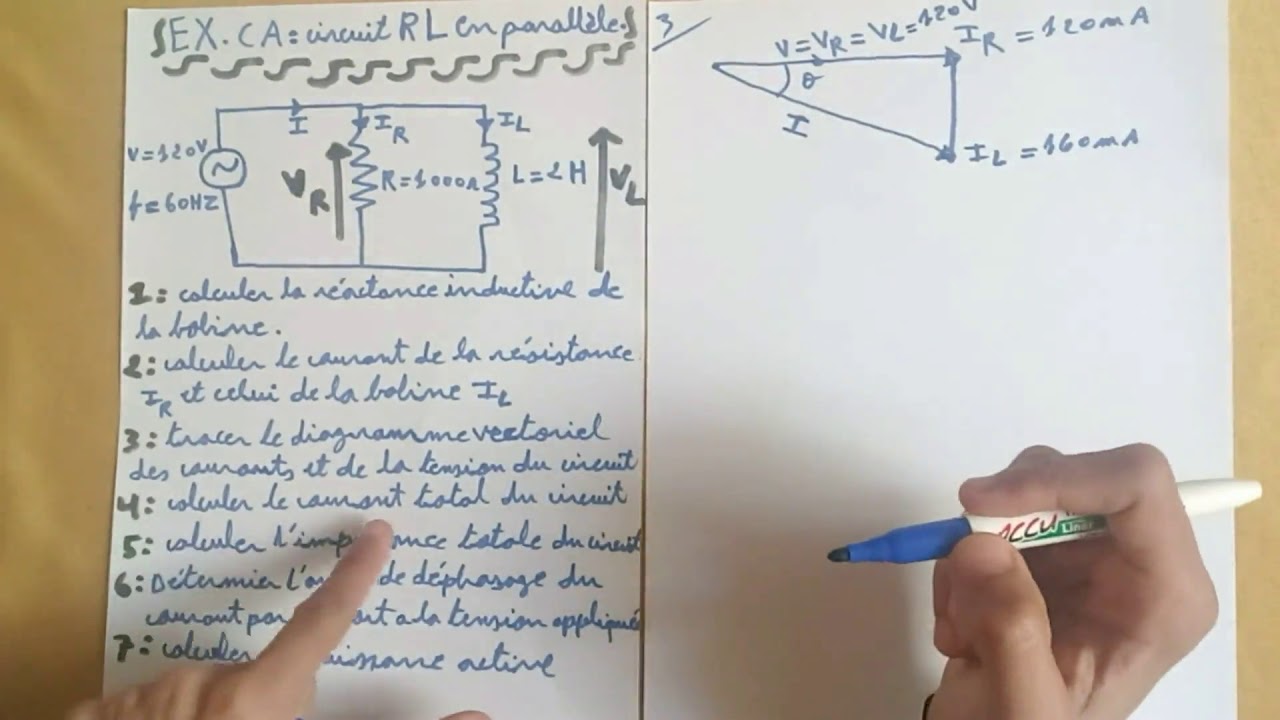 EX. CA: circuit RL en parallèle
I
I_R
I_L
V=120V
f=60HZ
V_R
R=1000Ω
L=2H
V_L
1: calculer la réactance inductive de
la bobine.
2: calculer le courant de la résistance
I_R et celui de la bobine I_L
3: tracer le diagramme vectoriel
des courants et de la tension du circuit
4: calculer le courant total du circuit
5: calculer totale du circuit
6: Détermier de déphasage du
courant a la tension appliqué
7: calculer active
3/
V=V_R=V_L=120V
I_R = 120mA
θ
I
I_L = 160mA
ACCU
Liner